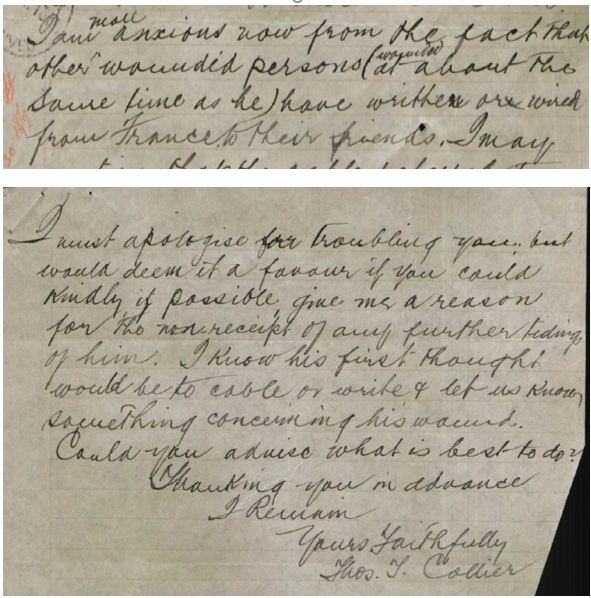 I am more anxious now from the fact that
other wounded persons (wounded at about the
same time as he) have written or wired
from France to their friends. I may
I must apologise for troubling you, but
would deem it a favour if you could
kindly if possible, give me a reason
for the non-receipt of any further tidings
of him. I know his first thought
would be to cable or write & let us know
something concerning his wound.
Could you advise what is best to do?
Thanking you in advance
I Remain
Yours Faithfully
Thos. T. Collier